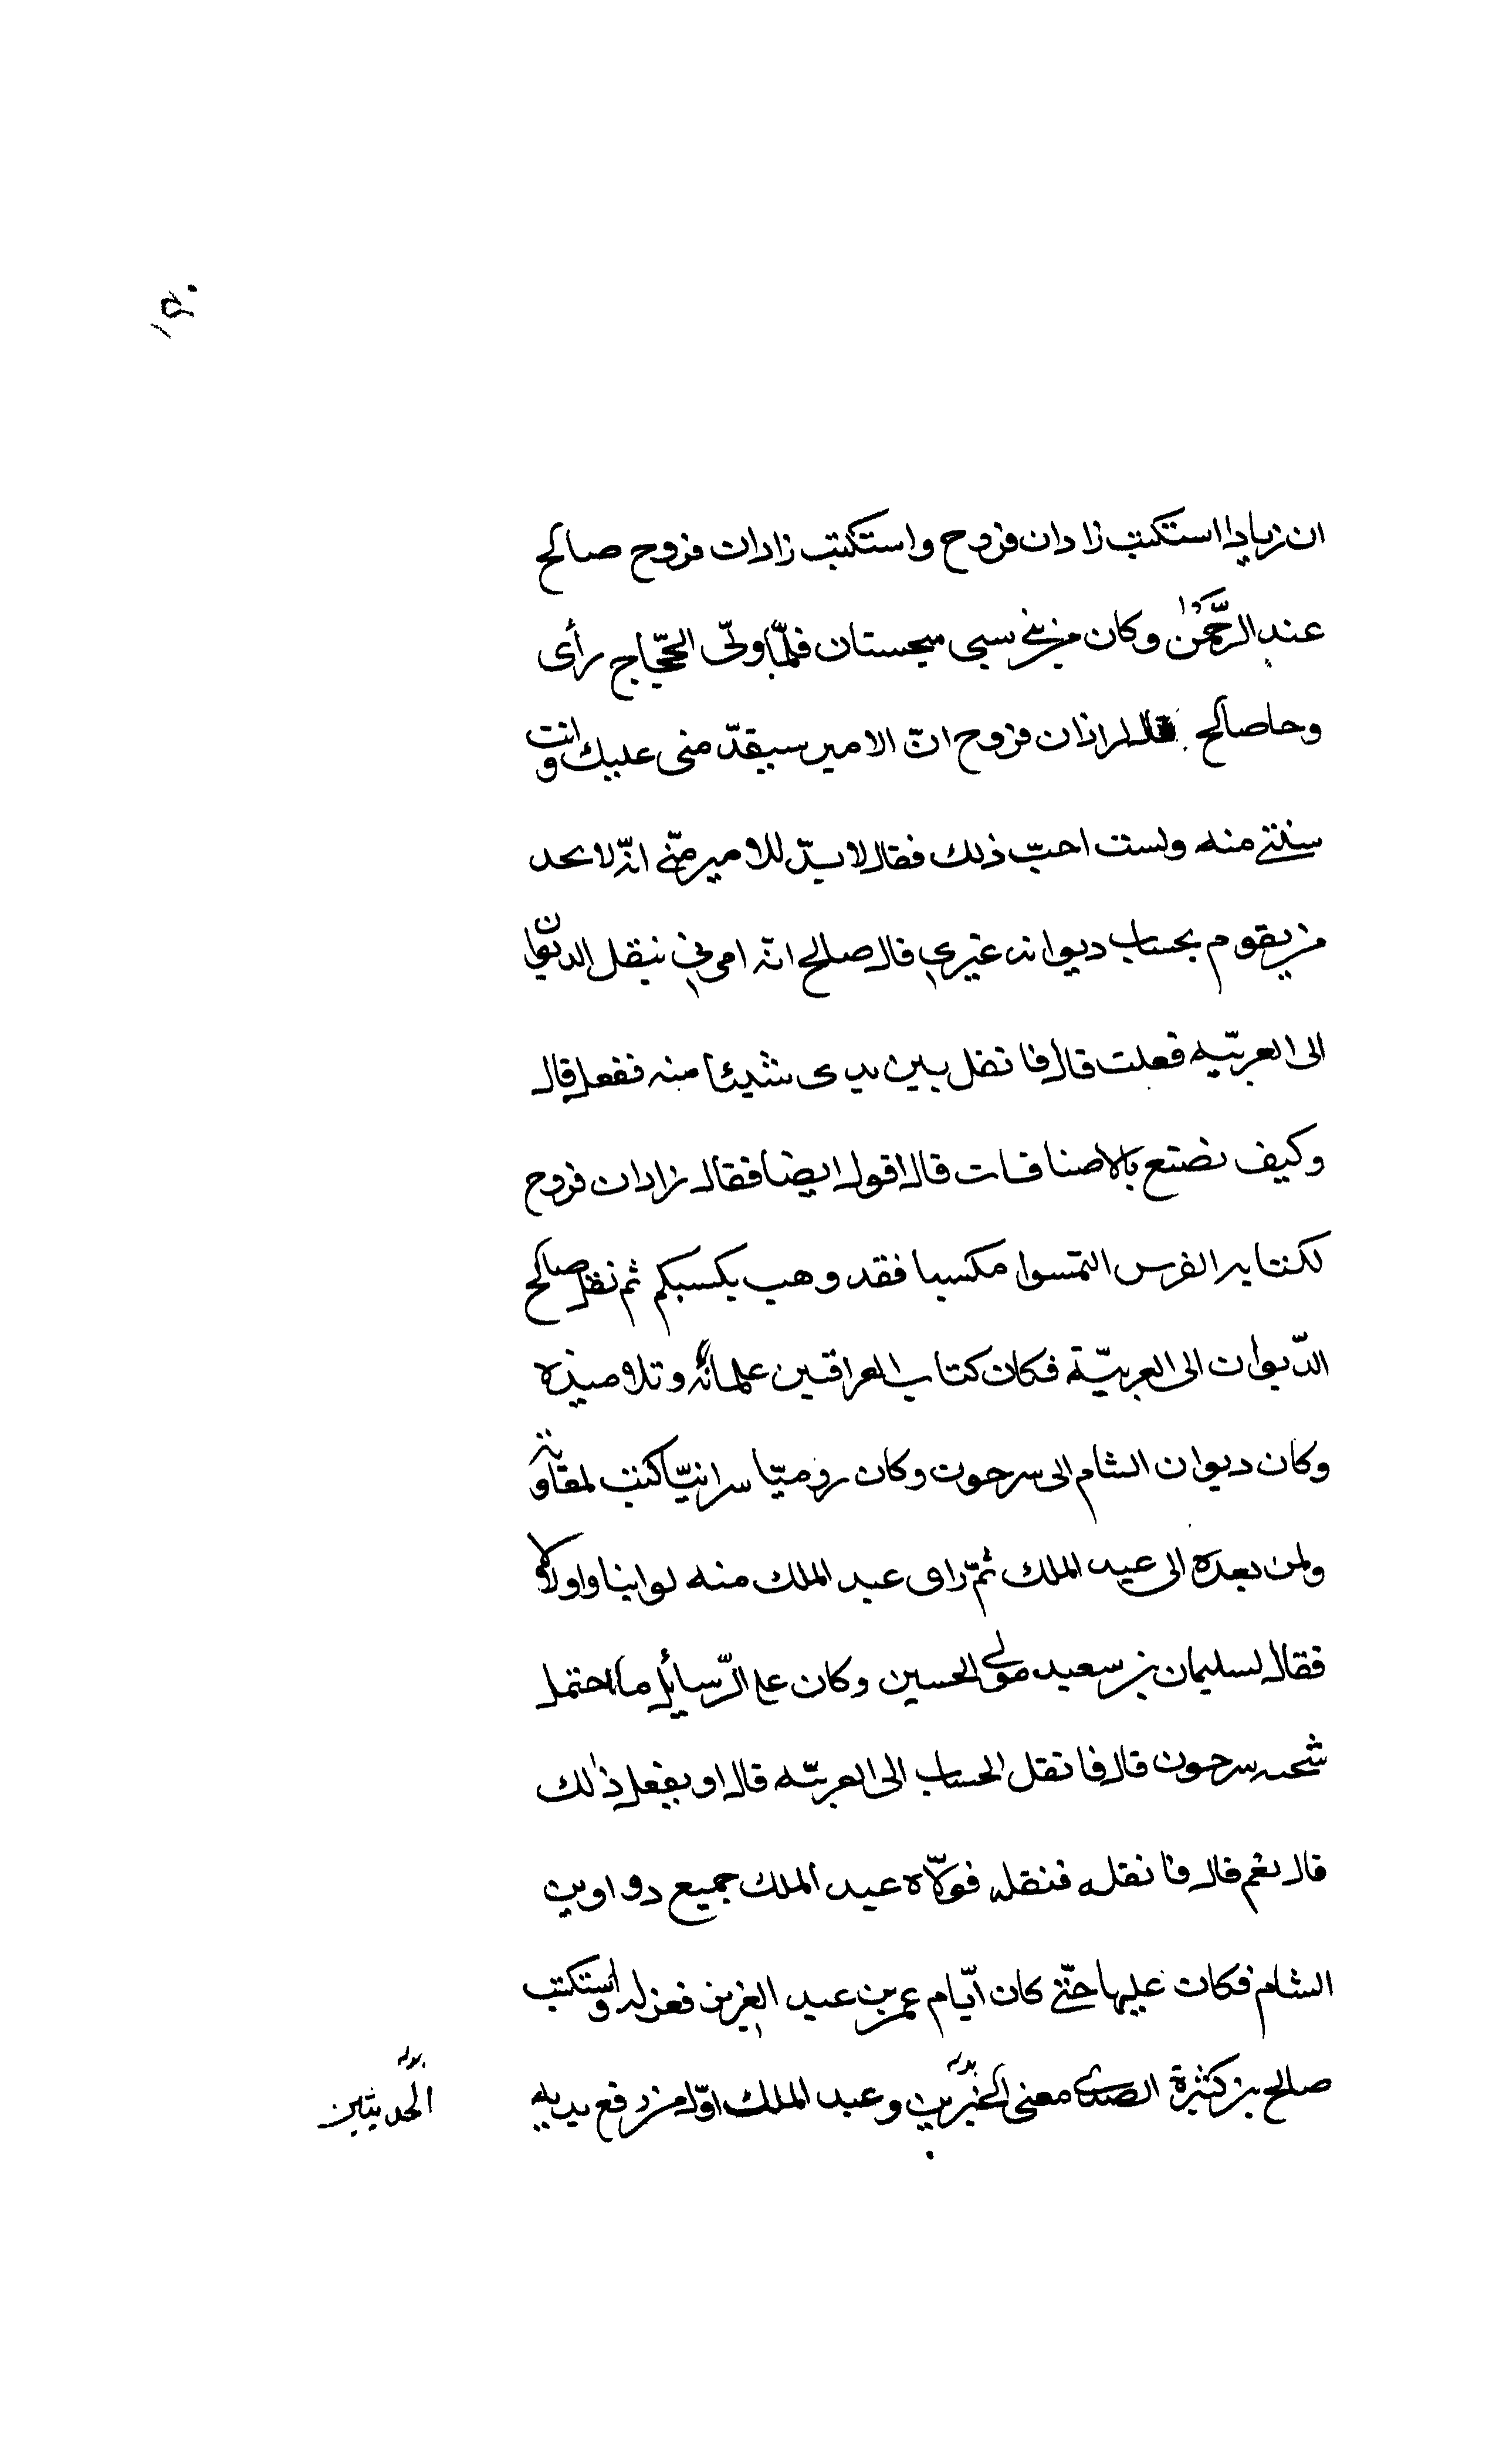 ان زيادا استكتب زادان فروح واستكتب زادان فروح صالح
عبد الرحمن وكان من بني سبى سجستان فلما ولى الحجاج رأى
وحا صالح قال لزاذان فروح ان الامير سيقدمنى عليك وانت
سنتي منه ولست احبّ ذلك فقال لا بدّ للامير منّي انّه لا يجد
من يقوم بحساب ديوانه غيري قال صالح انه امرني بنقل الديوان
الى العربيّه فعلت قال فانقل بين يدى شيئا منه ففعل قال
وكيف تصنع بالاصنافات قال اقول ايضا فقال زادان فروح
لكتابه الفرس التمسوا مكسبا فقد وهب بكسبكم ثم نقل صالح
الدّيوان الى العربيّة فكان كتاب العراقين غلمانه وتلاميذه
وكان ديوان الشام الى سرحون وكان روميّا سرانيّا كتب لمعاوية
ولمن بعده الى عبد الملك ثمّ راى عبد الملك منه توانيا واولاه
فقال لسليمان بن سعيد مولى الحسين وكان على الرّسائل ما احتمل
سرحون قال فانقل الحساب الى العربيّه قال او يفعل ذلك
قال نعم قال فانقله فنقله فولّاه عبد الملك جميع دواوين
الشام فكان عليها حتّى كان ايّام عمر بن عبد العزيز فعزله واستكتب
صالح بن كثيرة الصداى معنى الخبرين وعبد الملك اوّل من رفع يديه
الحديثين